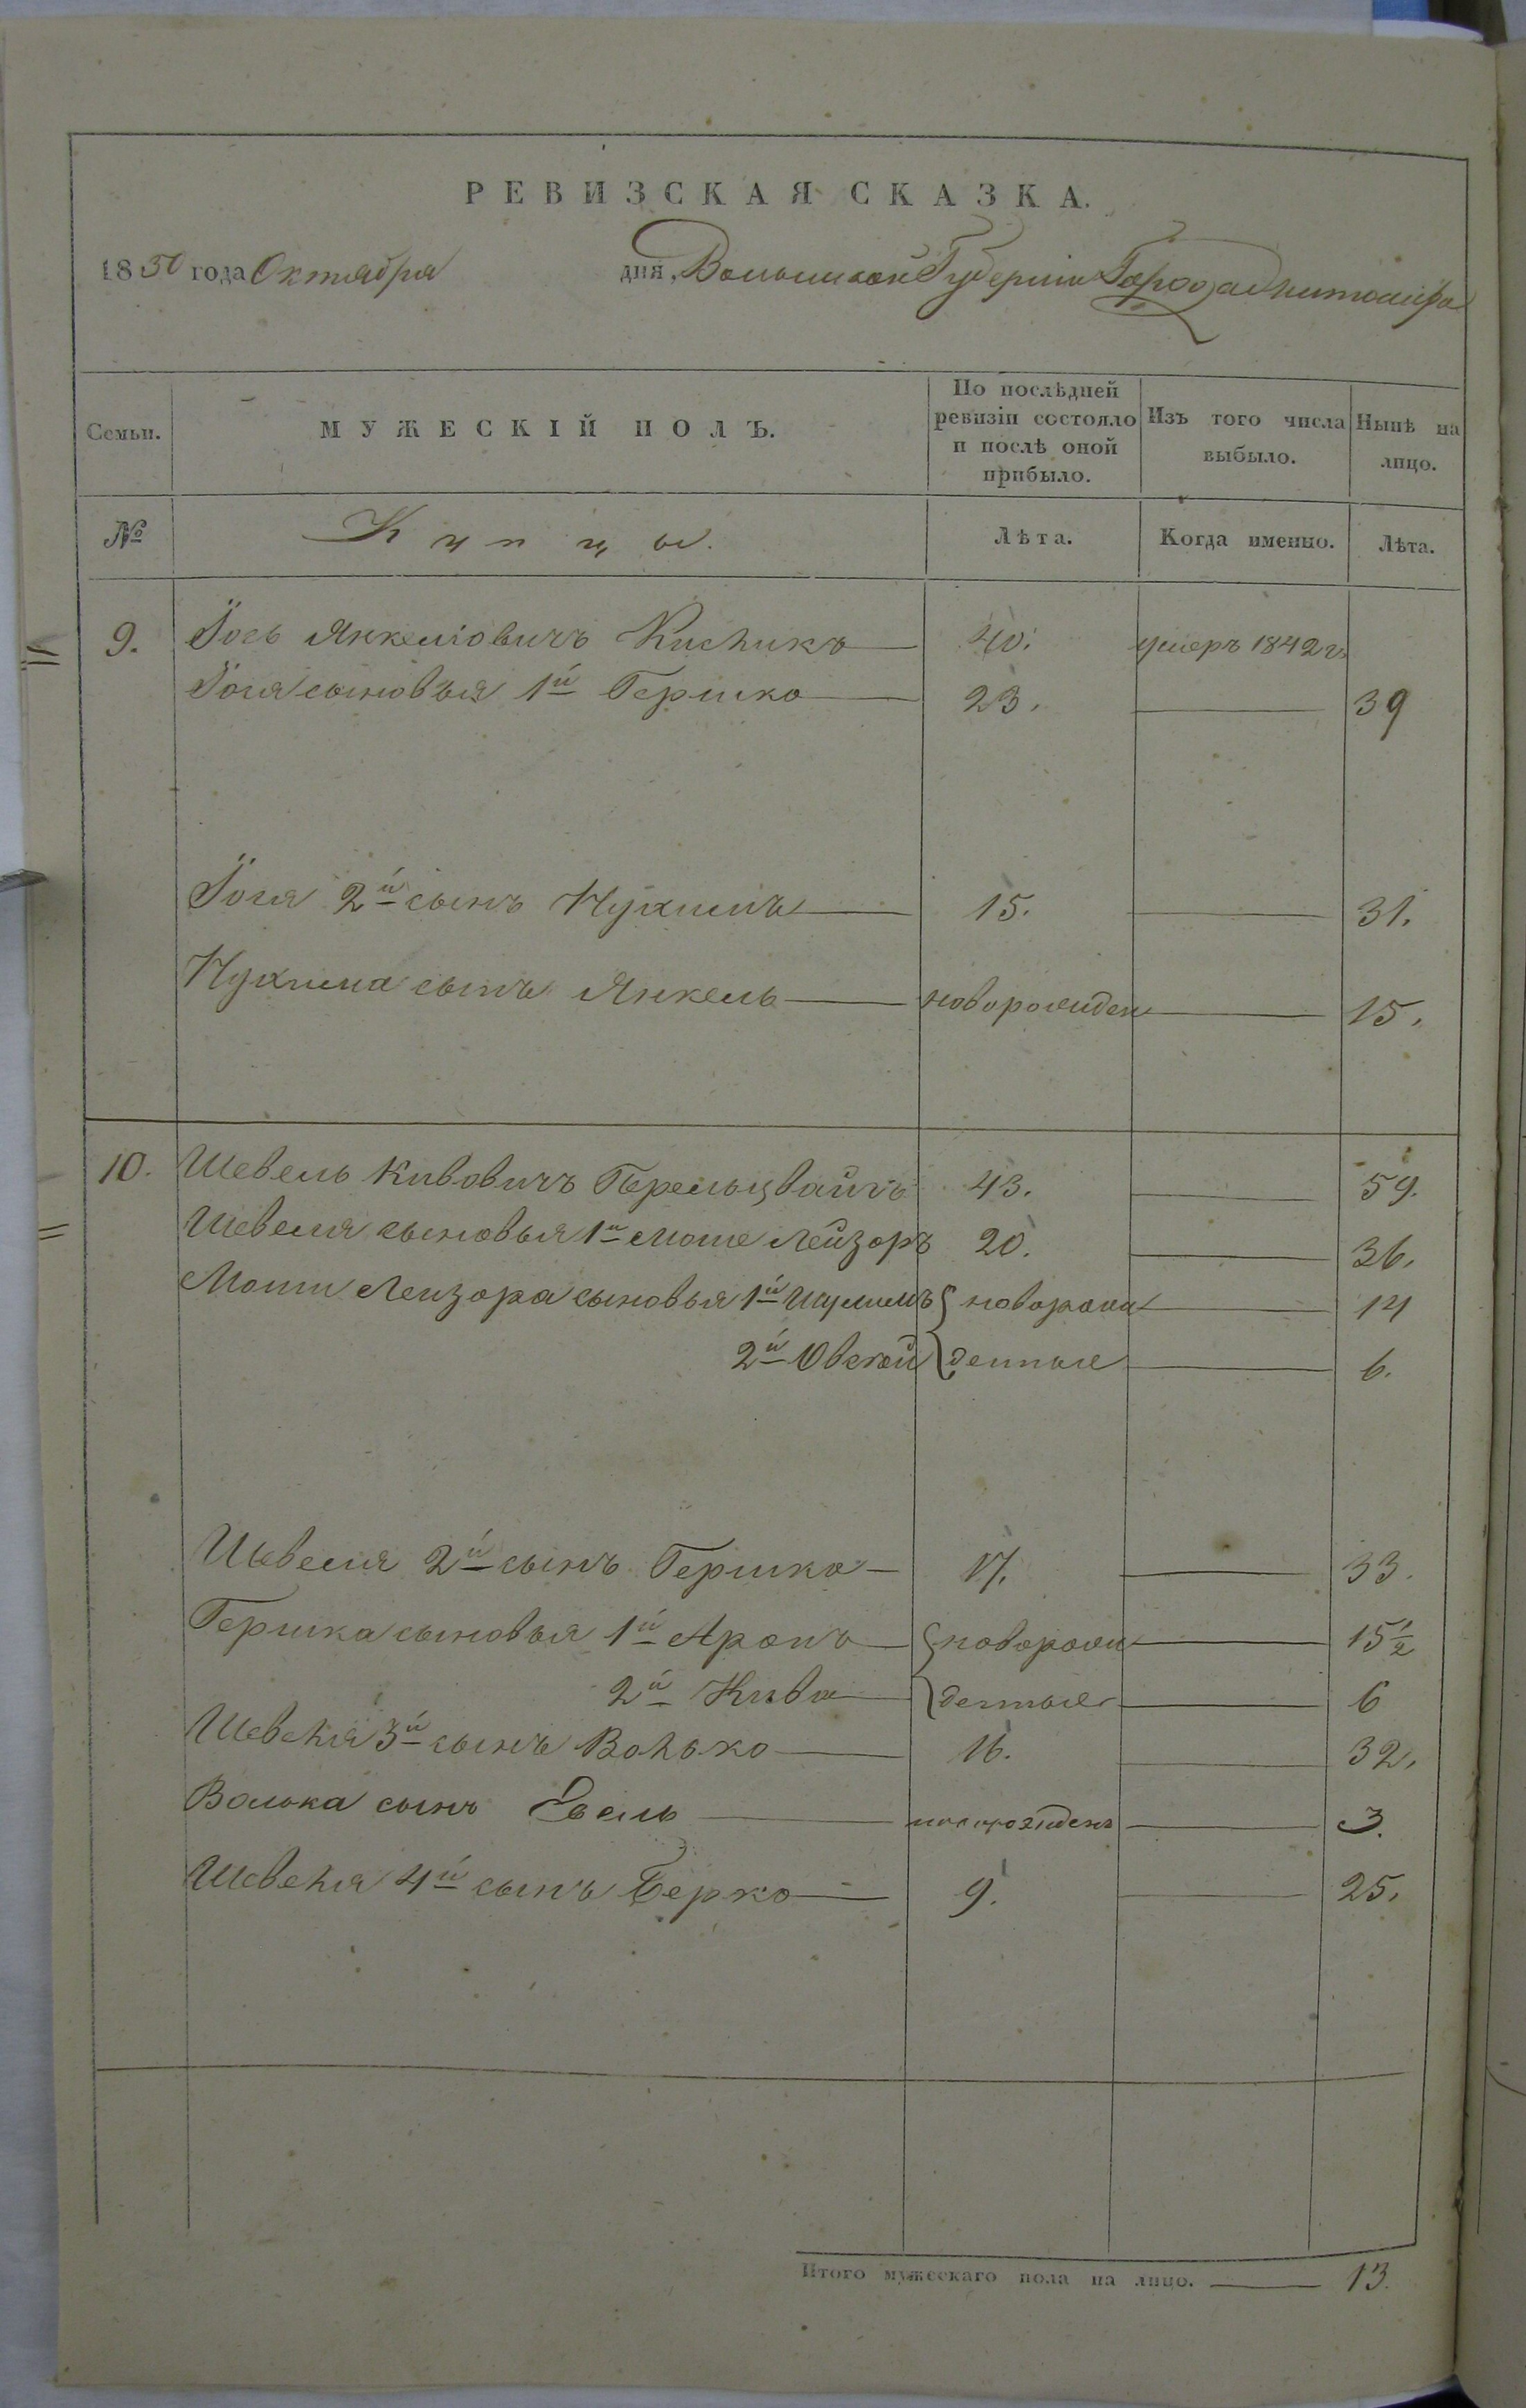 РЕВИЗСКАЯ СКАЗКА.
1850 года Октября дня, Волынской Губерніи Города Житомира
Семьи. МУЖЕСКІЙ ПОЛЪ. По послѣдней ревизіи состояло и послѣ оной прибыло. Изъ того числа выбыло. Нынѣ на лицо.
№ Купцы. Лѣта. Когда именно. Лѣта.
9. Іось Янкеліовичъ 40. умеръ 1842 г.
Іося сыновья 1й Гершко 23. 39
Іося 2й сынъ Нухимъ 15. 31.
Нухима сынъ Янкель новорожден 15.
10. Шевель Кивовичъ Перельцвайгъ 43. 59.
Шевеля сыновья 1й Моше Лейзоръ 20. 36.
Моши Лейзора сыновья 1й новорож 14
2й Овсей денные 6.
Шевеля 2й сынъ Гершко 17. 33.
Гершка сыновья 1й Аронъ новорож 15 1/2
2й Кива денные 6
Шевеля 3й сынъ Волько 16. 32.
Волька сынъ новорожденъ 3.
Шевеля 4й сынъ Берко 9. 25.
Итого мужескаго пола на лицо. 13.